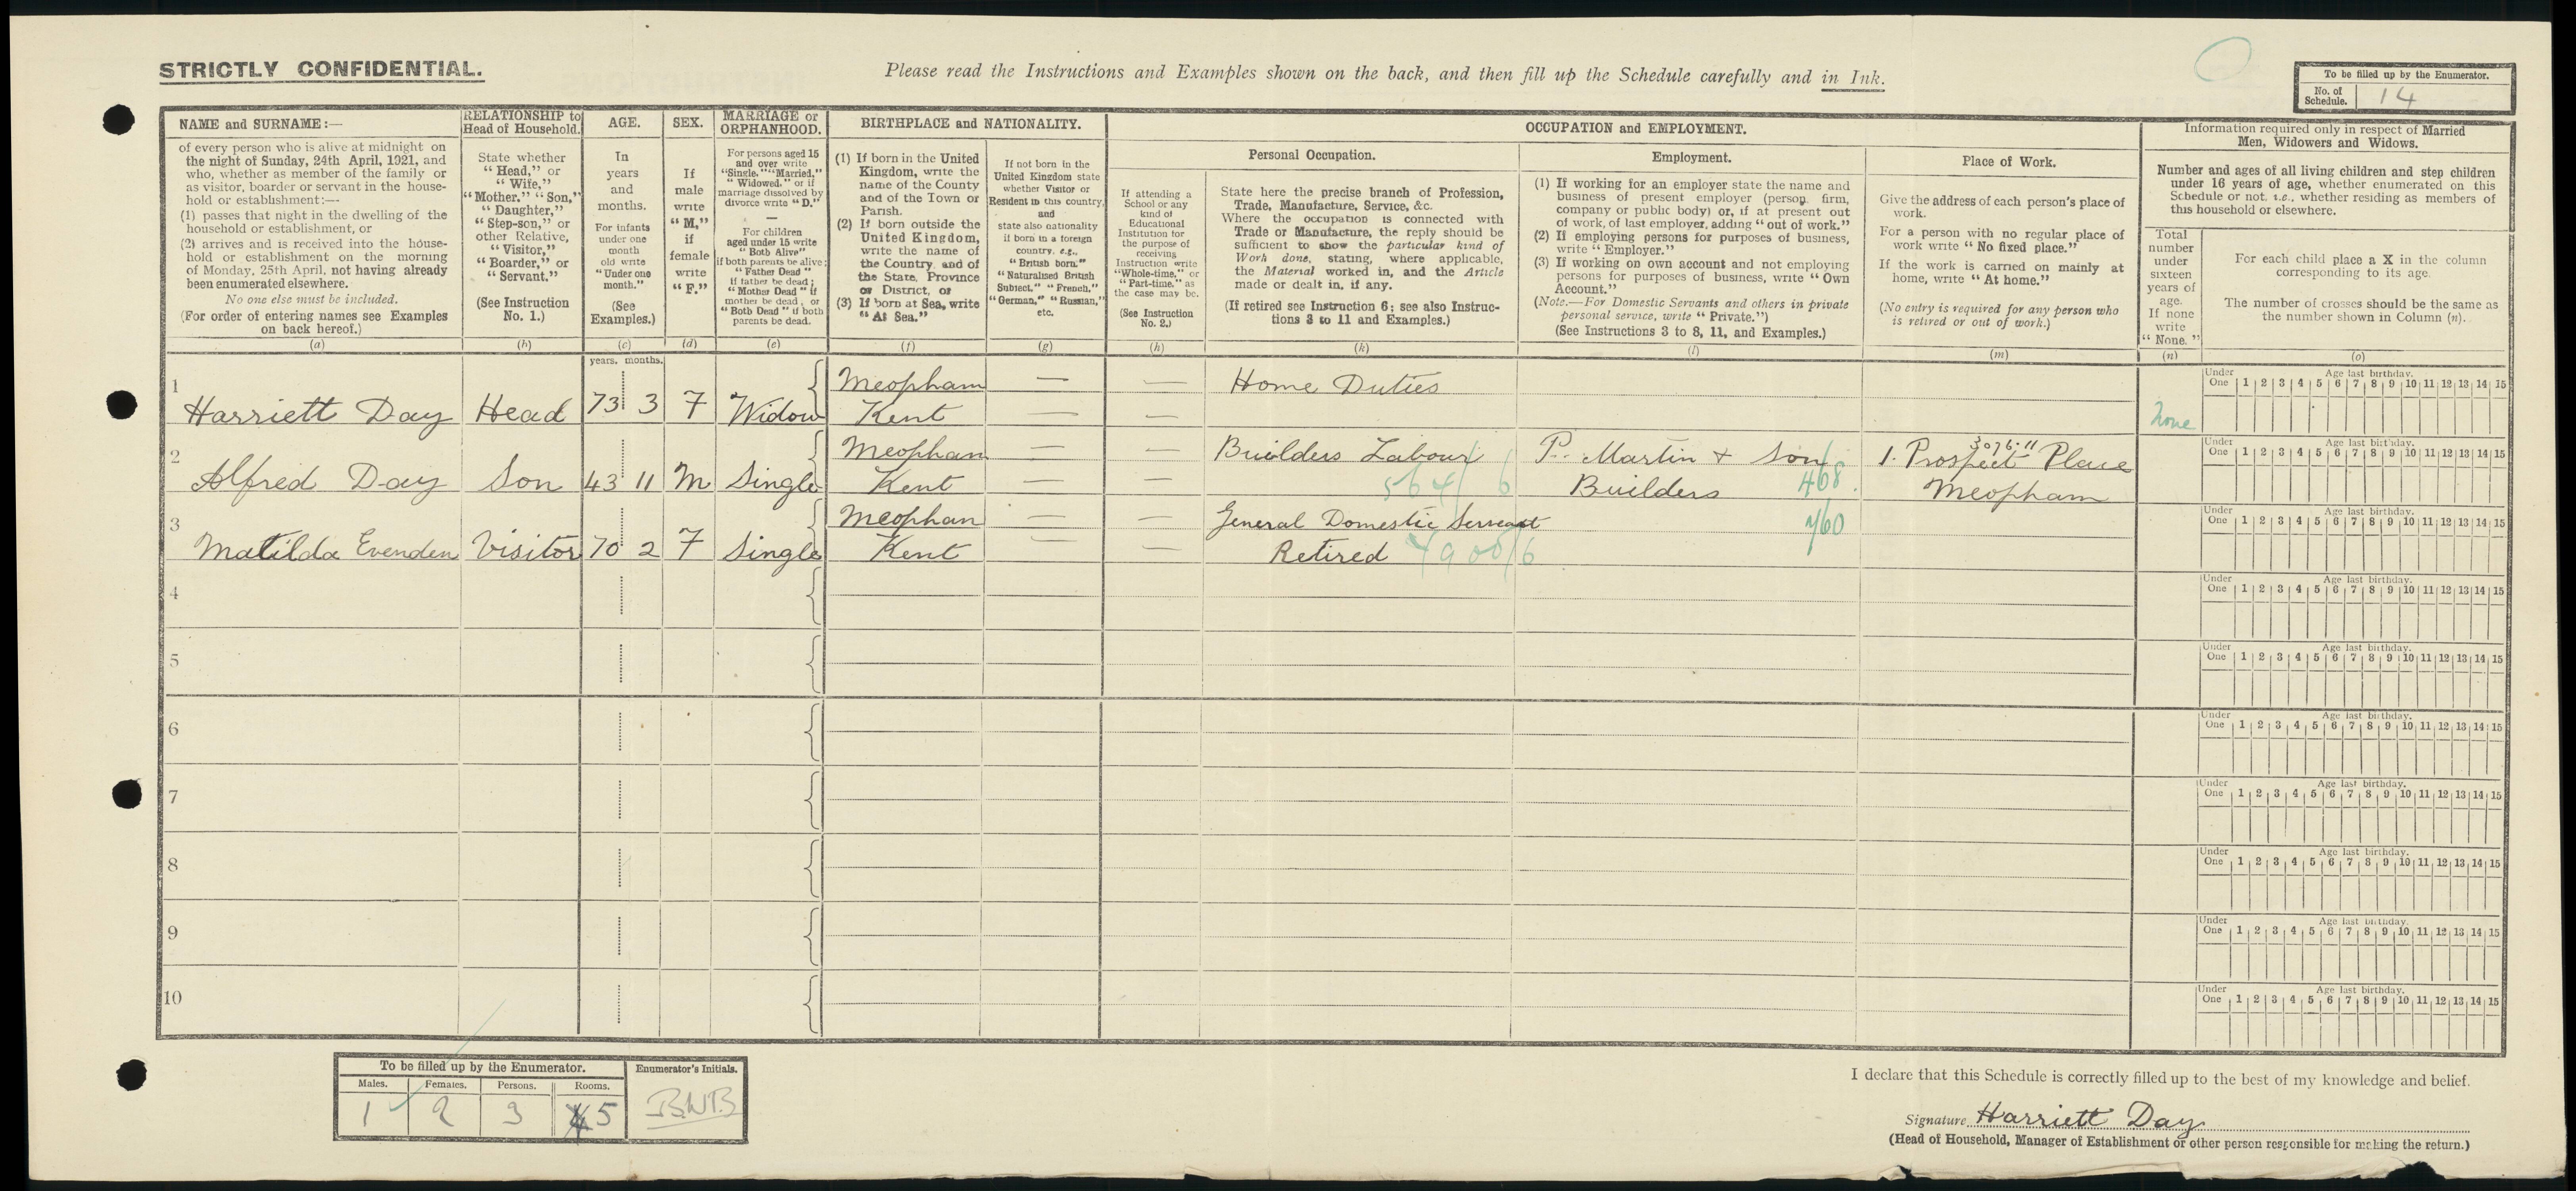 STRICTLY CONFIDENTIAL.
Please read the Instructions and Examples shown on the back, and then fill up the Schedule carefully and in Ink.
To be filled up by the Enumerator.
No. of Schedule. 14
NAME and SURNAME:—
of every person who is alive at midnight on
the night of Sunday, 24th April, 1921, and
who, whether as member of the family or
as visitor, boarder or servant in the house-
hold or establishment:—
(1) passes that night in the dwelling of the
household or establishment, or
(2) arrives and is received into the house-
hold or establishment on the morning
of Monday, 25th April, not having already
been enumerated elsewhere.
No one else must be included.
(For order of entering names see Examples
on back hereof.)
(a)
RELATIONSHIP to
Head of Household.
State whether
"Head," or
"Wife,"
"Mother," "Son,"
"Daughter,"
"Step-son," or
other Relative,
"Visitor,"
"Boarder," or
"Servant."
(See Instruction
No. 1.)
(b)
AGE.
In
years
and
months.
For infants
under one
month
old write
"Under one
month."
(See
Examples.)
(c)
SEX.
If
male
write
"M,"
if
female
write
"F."
(d)
MARRIAGE or
ORPHANHOOD.
For persons aged 15
and over write
"Single," "Married,"
"Widowed," or if
marriage dissolved by
divorce write "D."
—
For children
aged under 15 write
"Both Alive"
if both parents be alive;
"Father Dead"
if father be dead;
"Mother Dead" if
mother be dead, or
"Both Dead" if both
parents be dead.
(e)
BIRTHPLACE and NATIONALITY.
(1) If born in the United
Kingdom, write the
name of the County
and of the Town or
Parish.
(2) If born outside the
United Kingdom,
write the name of
the Country, and of
the State, Province
or District, or
(3) If born at Sea, write
"At Sea."
(f)
If not born in the
United Kingdom state
whether Visitor or
Resident in this country,
and
state also nationality
if born in a foreign
country, e.g.,
"British born."
"Naturalised British
Subject," "French,"
"German," "Russian,"
etc.
(g)
OCCUPATION and EMPLOYMENT.
Personal Occupation.
If attending a
School or any
kind of
Educational
Institution for
the purpose of
receiving
Instruction write
"Whole-time," or
"Part-time," as
the case may be.
(See Instruction
No. 2.)
(h)
State here the precise branch of Profession,
Trade, Manufacture, Service, &c.
Where the occupation is connected with
Trade or Manufacture, the reply should be
sufficient to show the particular kind of
Work done, stating, where applicable,
the Material worked in, and the Article
made or dealt in, if any.
(If retired see Instruction 6; see also Instruc-
tions 3 to 11 and Examples.)
(k)
Employment.
(1) If working for an employer state the name and
business of present employer (person, firm,
company or public body) or, if at present out
of work, of last employer, adding "out of work."
(2) If employing persons for purposes of business,
write "Employer."
(3) If working on own account and not employing
persons for purposes of business, write "Own
Account."
(Note.—For Domestic Servants and others in private
personal service, write "Private.")
(See Instructions 3 to 8, 11, and Examples.)
(l)
Place of Work.
Give the address of each person's place of
work.
For a person with no regular place of
work write "No fixed place."
If the work is carried on mainly at
home, write "At home."
(No entry is required for any person who
is retired or out of work.)
(m)
Information required only in respect of Married
Men, Widowers and Widows.
Number and ages of all living children and step children
under 16 years of age, whether enumerated on this
Schedule or not, i.e., whether residing as members of
this household or elsewhere.
Total
number
under
sixteen
years of
age.
If none
write
"None."
(n)
For each child place a X in the column
corresponding to its age.
The number of crosses should be the same as
the number shown in Column (n).
(o)
years. months.
1 Harriett Day Head 73 3 F Widow Meopham Kent — — — — Home Duties None
Under One Age last birthday. 1 2 3 4 5 6 7 8 9 10 11 12 13 14 15
2 Alfred Day Son 43 11 M Single Meopham Kent — — — — Builders Labour 564/6 P. Martin + Son Builders 468 3076.11 1. Prospect Place Meopham
Under One Age last birthday. 1 2 3 4 5 6 7 8 9 10 11 12 13 14 15
3 Matilda Evenden Visitor 70 2 F Single Meopham Kent — — — — General Domestic Servant Retired 900/6 760
Under One Age last birthday. 1 2 3 4 5 6 7 8 9 10 11 12 13 14 15
4
Under One Age last birthday. 1 2 3 4 5 6 7 8 9 10 11 12 13 14 15
5
Under One Age last birthday. 1 2 3 4 5 6 7 8 9 10 11 12 13 14 15
6
Under One Age last birthday. 1 2 3 4 5 6 7 8 9 10 11 12 13 14 15
7
Under One Age last birthday. 1 2 3 4 5 6 7 8 9 10 11 12 13 14 15
8
Under One Age last birthday. 1 2 3 4 5 6 7 8 9 10 11 12 13 14 15
9
Under One Age last birthday. 1 2 3 4 5 6 7 8 9 10 11 12 13 14 15
10
Under One Age last birthday. 1 2 3 4 5 6 7 8 9 10 11 12 13 14 15
To be filled up by the Enumerator.
Males. Females. Persons. Rooms.
1 2 3 5
Enumerator's Initials.
B.W.B
I declare that this Schedule is correctly filled up to the best of my knowledge and belief.
Signature Harriett Day
(Head of Household, Manager of Establishment or other person responsible for making the return.)